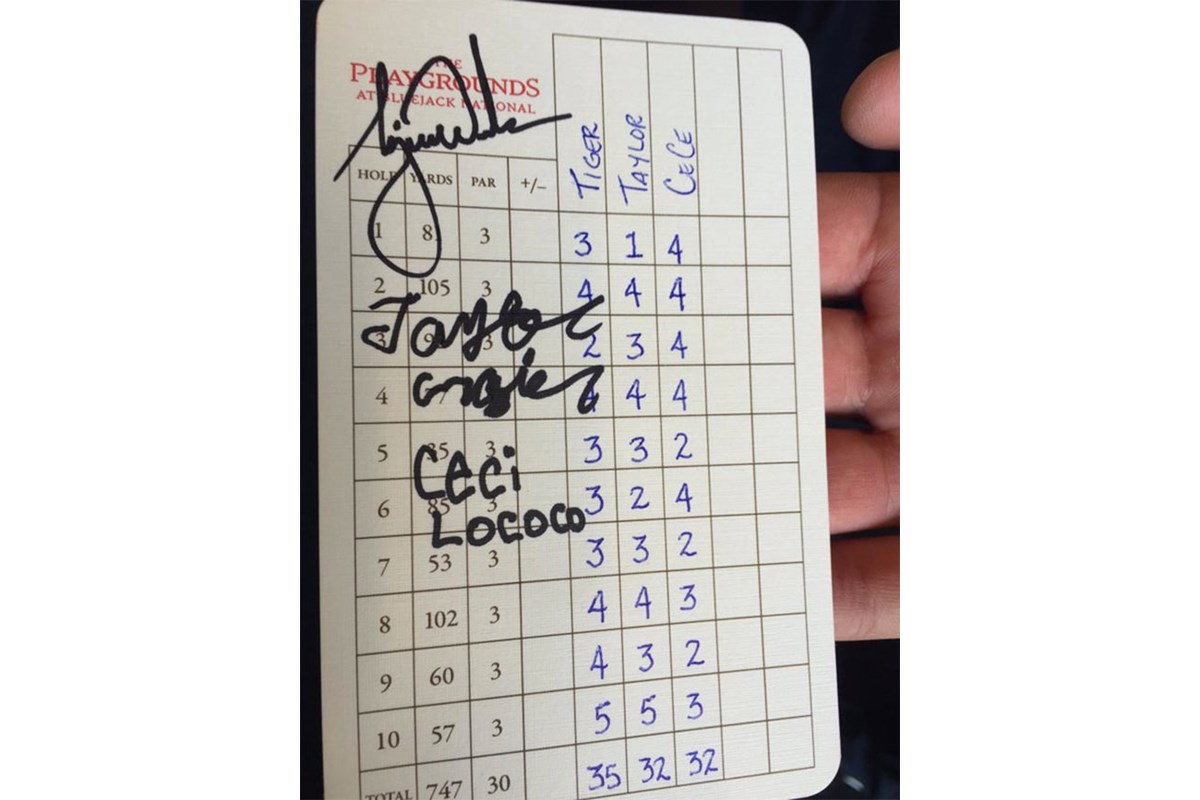 THE
PLAYGROUNDS
AT BLUEJACK NATIONAL
HOLE YARDS PAR +/– TIGER TAYLOR CECE
1 3 3 1 4
2 105 3 4 4 4
Taylor
3 3 2 3 4
4 4 4 4
5 3 3 3 2
Ceci
6 85 3 3 2 4
Lococo
7 53 3 3 3 2
8 102 3 4 4 3
9 60 3 4 3 2
10 57 3 5 5 3
TOTAL 747 30 35 32 32